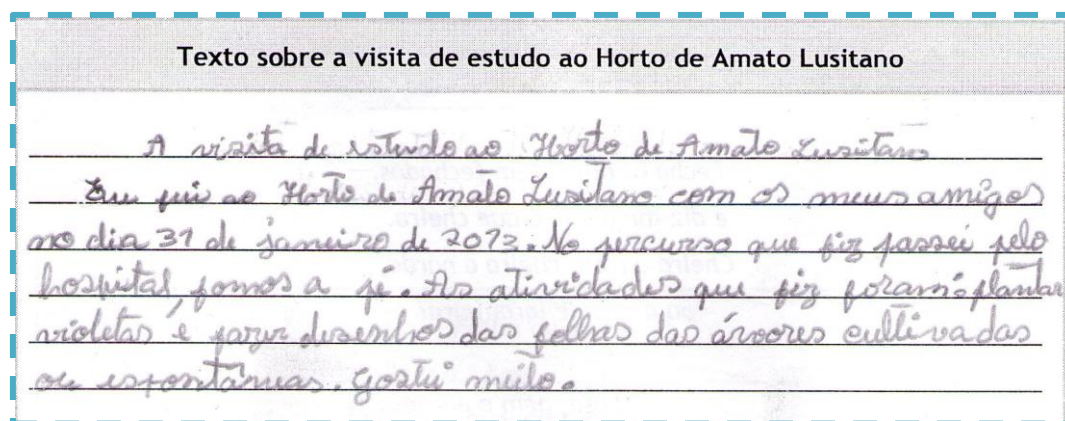 Texto sobre a visita de estudo ao Horto de Amato Lusitano
A visita de estudo ao Horto de Amato Lusitano
Eu fui ao Horto de Amato Lusitano com os meus amigos
no dia 31 de janeiro de 2012. No percurso que fiz passei pelo
hospital, fomos a pé. As atividades que fiz foram: plantar
violetas e fazer desenhos das folhas das árvores cultivadas
ou espontâneas. Gostei muito.